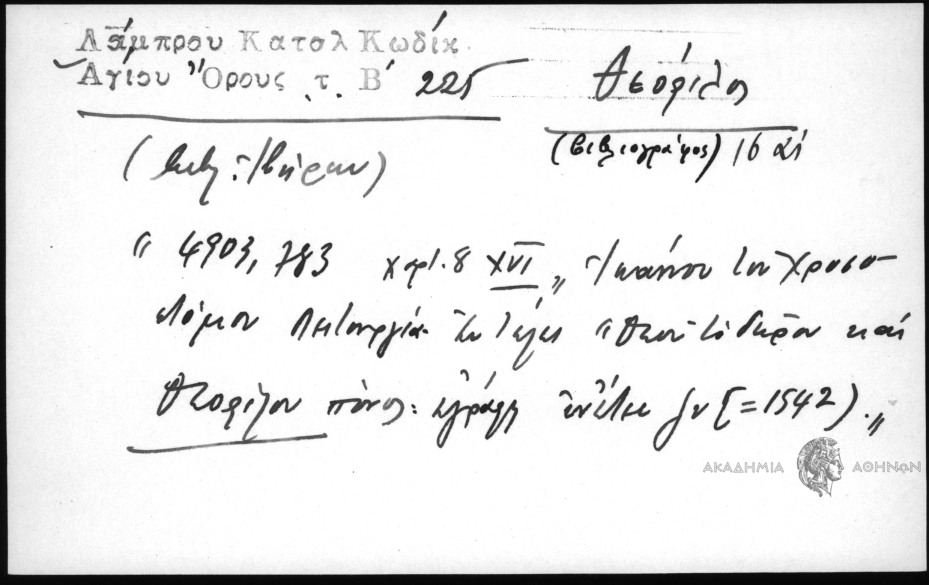 Λάμπρου Κατολ Κωδίκ.
Αγίου Όρους τ. Β' 225
Θεόφιλος
(βιβλιογράφος) 16 αἰ
(βιβλ: Ἰβήρων)
" 4903, 783 χαρτ. 8 XVI " Ἰωάννου του Χρυσο-
στόμου Λειτουργία. Ἐν τέλει " Θεοῦ τὸ δῶρον καὶ
Θεοφίλου πόνος: ἐγράφη ἐν ἔτει ζν [=1542). "
ΑΚΑΔΗΜΙΑ ΑΘΗΝΩΝ